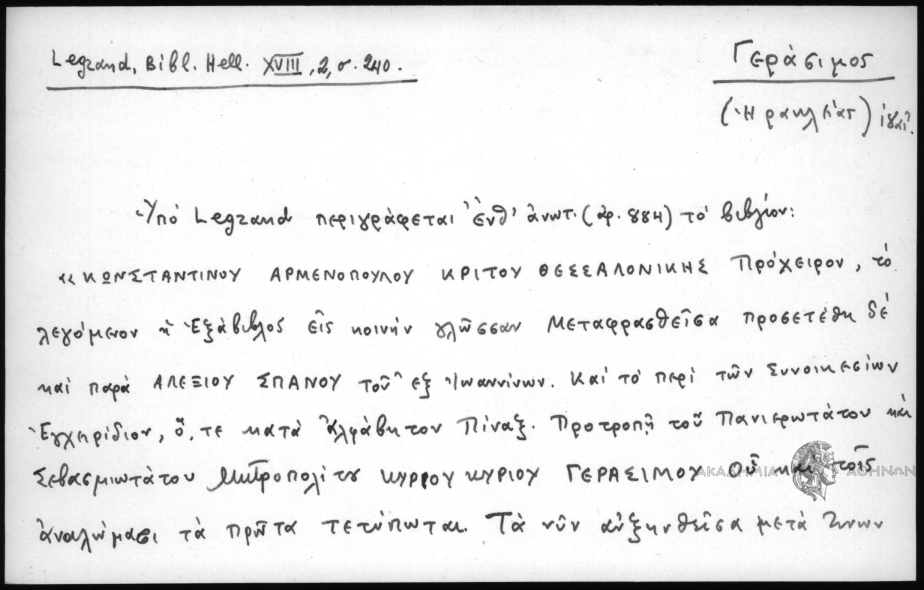 Legrand, Bibl. Hell. XVIII, 2, σ. 240.
Γεράσιμος
(Ἡρακλείας)
Ὑπό Legrand περιγράφεται ἐνθ' ἀνωτ. (ἀρ. 884) τό βιβλίον:
«ΚΩΝΣΤΑΝΤΙΝΟΥ ΑΡΜΕΝΟΠΟΥΛΟΥ ΚΡΙΤΟΥ ΘΕΣΣΑΛΟΝΙΚΗΣ Πρόχειρον, τό
λεγόμενον ἡ Ἑξάβιβλος εἰς κοινήν γλῶσσαν Μεταφρασθεῖσα προσετέθη δέ
καί παρά ΑΛΕΞΙΟΥ ΣΠΑΝΟΥ τοῦ ἐξ Ἰωαννίνων. Καί τό περί τῶν Συνοικεσίων
Ἐγχειρίδιον, ὅ, τε κατά Ἀλφάβητον Πίναξ. Προτροπῇ τοῦ Πανιερωτάτου καί
Σεβασμιωτάτου Μητροπολίτου ΚΥΡΙΟΥ ΚΥΡΙΟΥ ΓΕΡΑΣΙΜΟΥ Οὗ καί τοῖς
ΑΚΑΔΗΜΙΑ ΑΘΗΝΩΝ
ἀναλώμασι τά πρῶτα τετύπωται. Τά νῦν αὐξηνθεῖσα μετά τινων